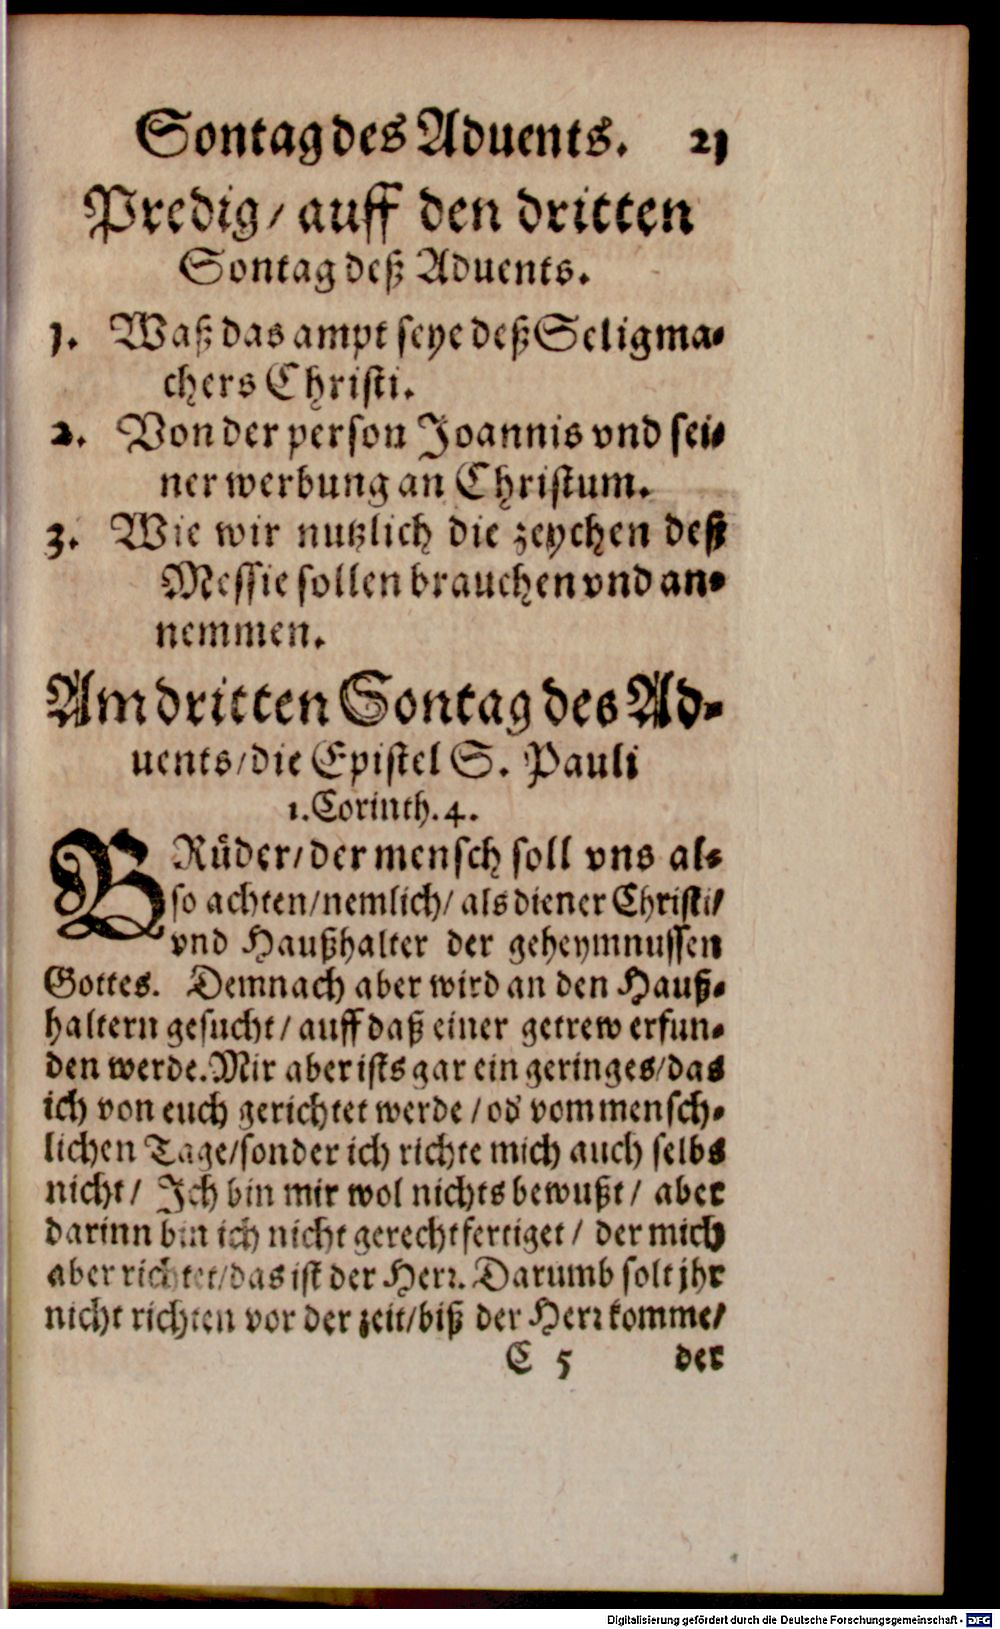 Sontag des Aduents. 21
Predig/ auff den dritten
Sontag deß Aduents.
1. Waß das ampt seye deß Seligma-
chers Christi.
2. Von der person Joannis vnd sei-
ner werbung an Christum.
3. Wie wir nutzlich die zeychen deß
Messie sollen brauchen vnd an-
nemmen.
Am dritten Sontag des Ad-
uents/die Epistel S. Pauli
1. Corinth. 4.
BRüder/der mensch soll vns al-
so achten/nemlich/ als diener Christi/
vnd Haußhalter der geheymnussen
Gottes. Demnach aber wird an den Hauß-
haltern gesucht/ auff daß einer getrew erfun-
den werde. Mir aber ists gar ein geringes/das
ich von euch gerichtet werde/od vom mensch-
lichen Tage/sonder ich richte mich auch selbs
nicht/ Ich bin mir wol nichts bewußt/ aber
darinn bin ich nicht gerechtfertiget/ der mich
aber richtet/das ist der Herr. Darumb solt jhr
nicht richten vor der zeit/biß der Herr komme/
C 5 der
Digitalisierung gefördert durch die Deutsche Forschungsgemeinschaft - DFG